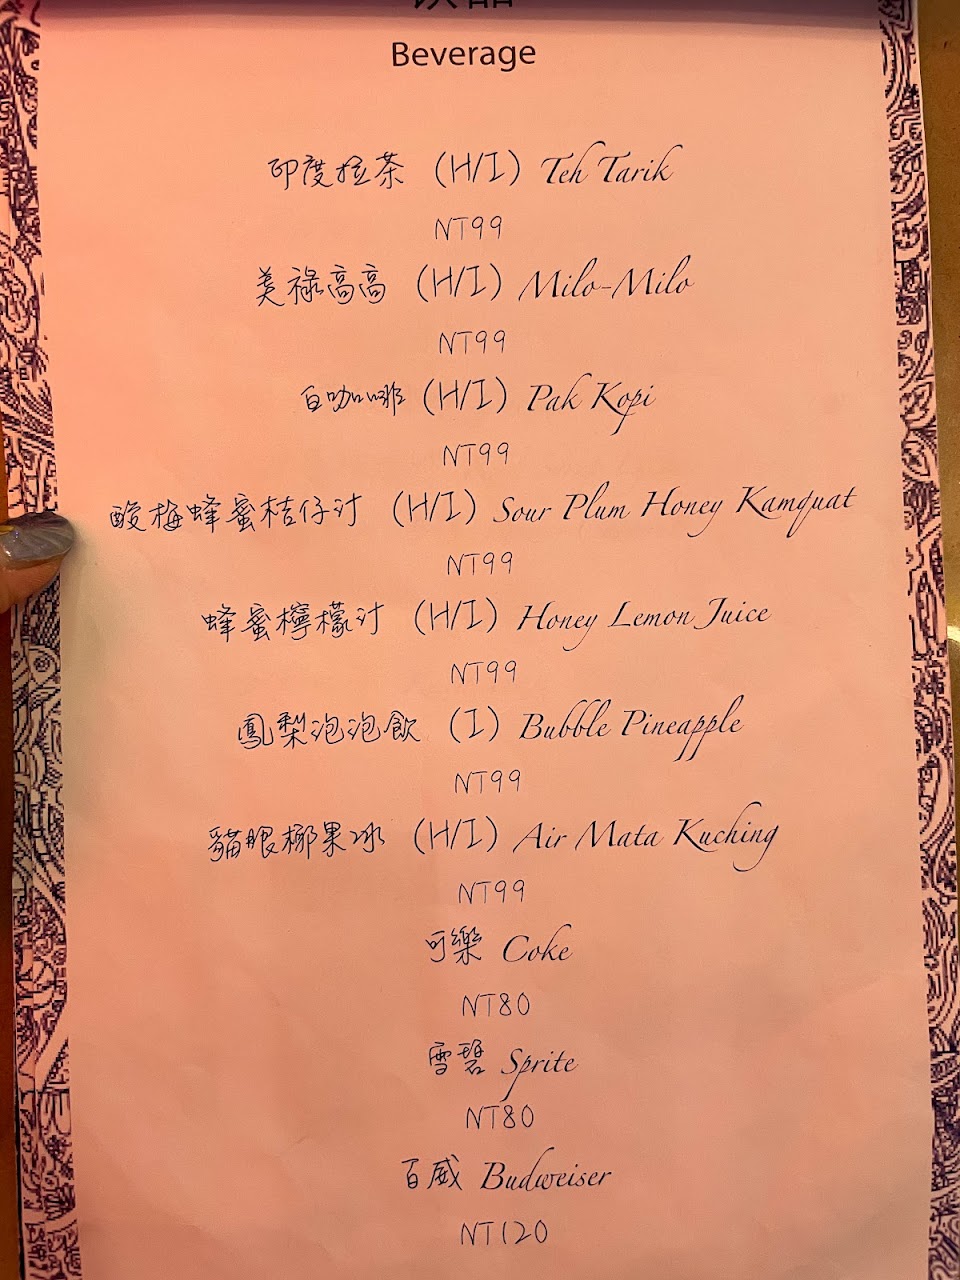 Beverage
印度拉茶 (H/I) Teh Tarik
NT99
美祿高高 (H/I) Milo-Milo
NT99
白咖啡 (H/I) Pak Kopi
NT99
酸梅蜂蜜桔仔汁 (H/I) Sour Plum Honey Kamquat
NT99
蜂蜜檸檬汁 (H/I) Honey Lemon Juice
NT99
鳳梨泡泡飲 (I) Bubble Pineapple
NT99
貓眼椰果冰 (H/I) Air Mata Kuching
NT99
可樂 Coke
NT80
雪碧 Sprite
NT80
百威 Budweiser
NT120